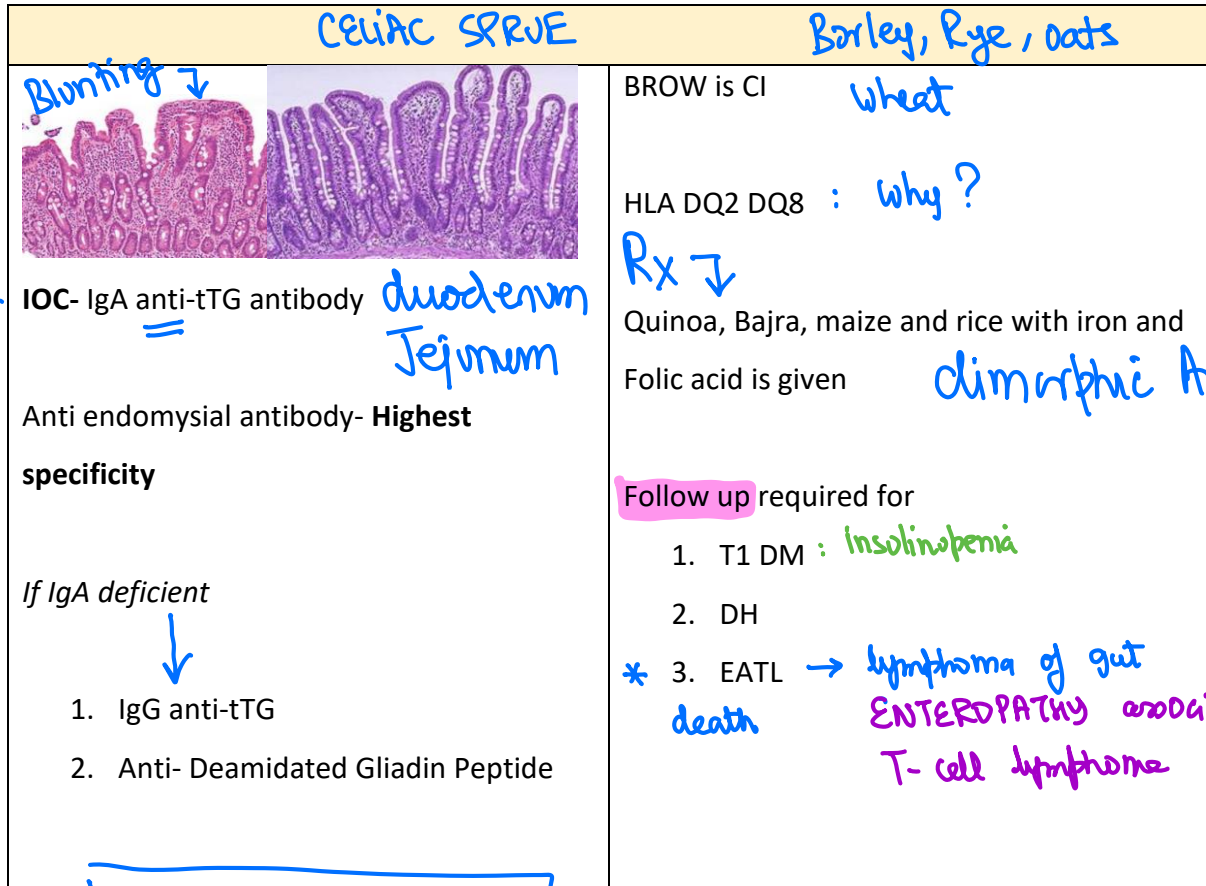 CELIAC SPRUE
Barley, Rye, oats
Blunting
IOC- IgA anti-tTG antibody duodenum
Jejunum
Anti endomysial antibody- Highest
specificity
If IgA deficient
1. IgG anti-tTG
2. Anti- Deamidated Gliadin Peptide
BROW is CI wheat
HLA DQ2 DQ8 : why?
Rx
Quinoa, Bajra, maize and rice with iron and
Folic acid is given dimorphic A
Follow up required for
1. T1 DM : insulinopenia
2. DH
* 3. EATL → lymphoma of gut
death ENTEROPATHY associ
T- cell lymphoma